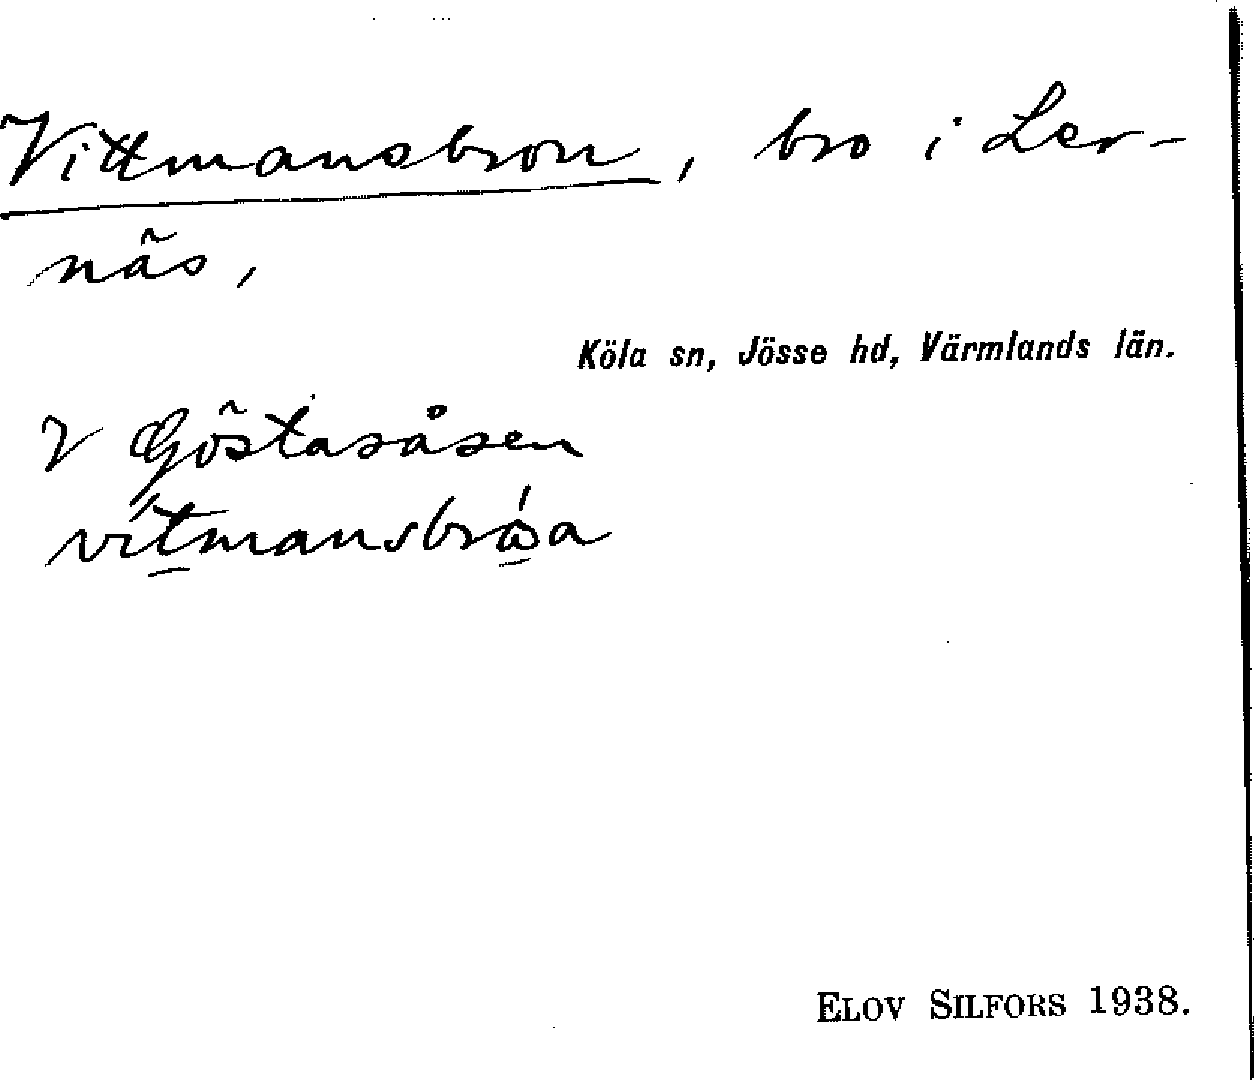 Vittmansbron, bro i Ler-
näs,
Köla sn, Jösse hd, Värmlands län.
V Göstasåsen
ELOV SILFORS 1938.